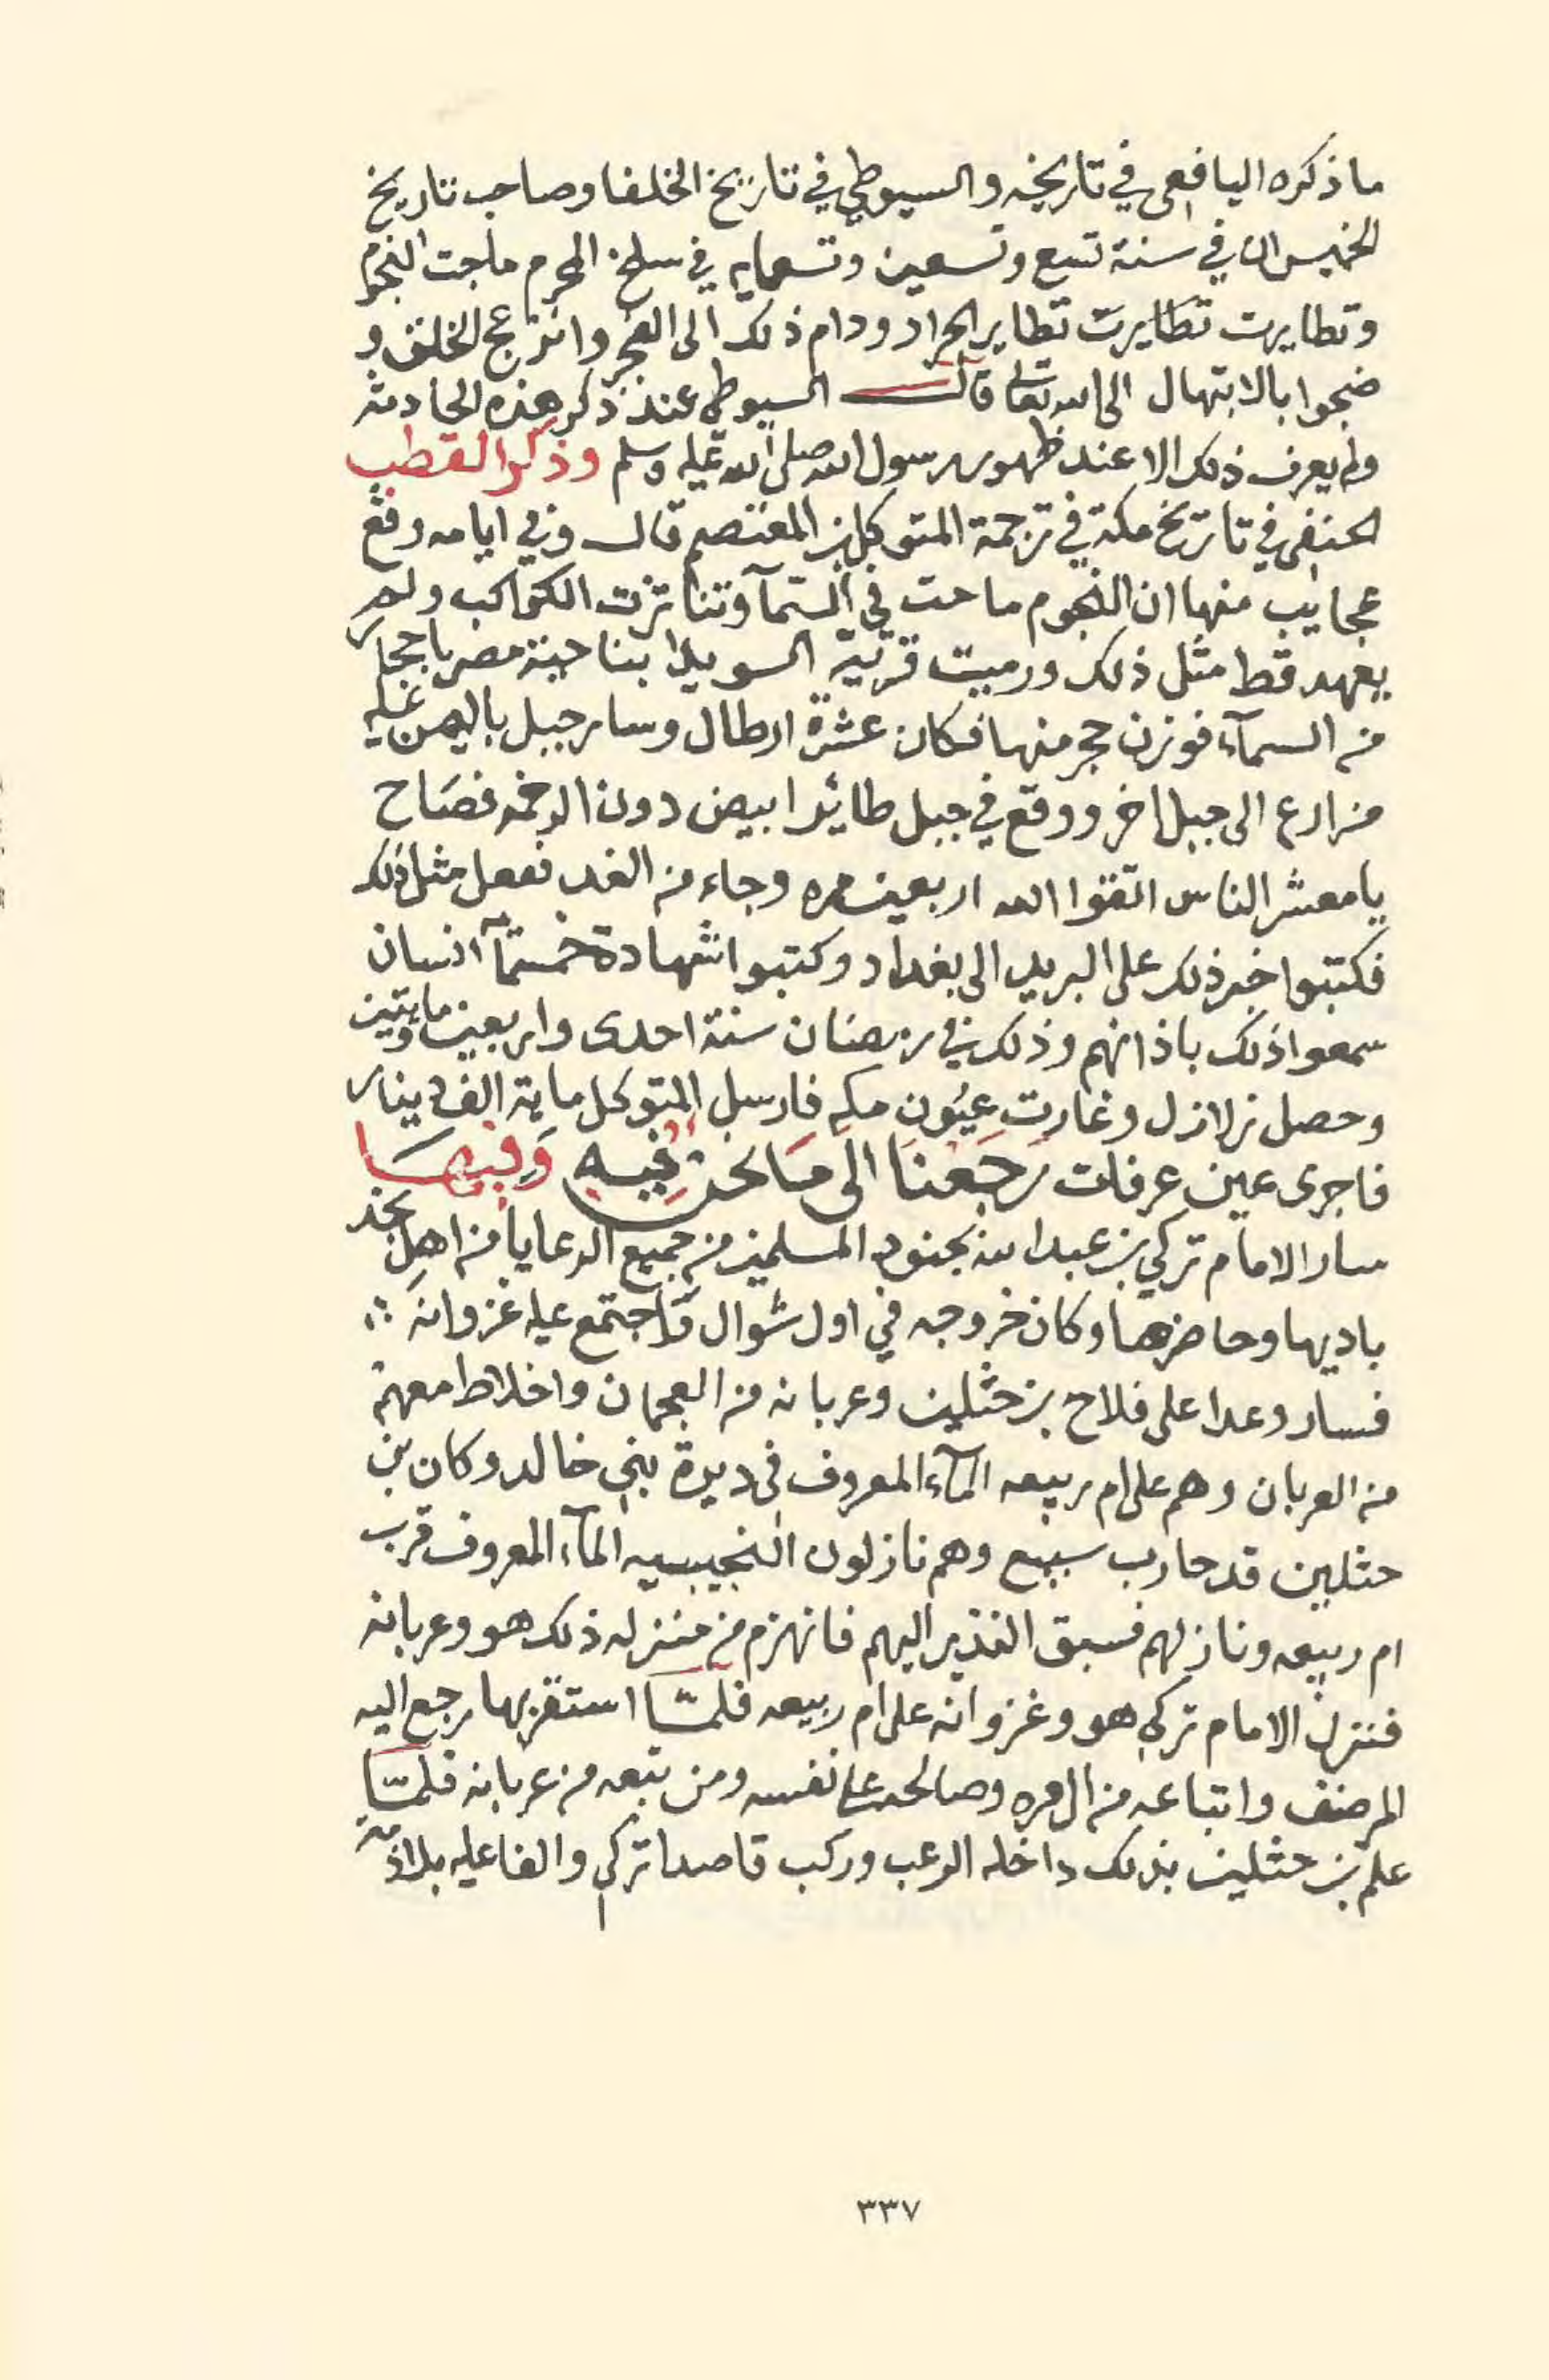 ما ذكره اليافعي في تاريخه والسيوطي في تاريخ الخلفا وصاحب تاريخ
الخميس ان في سنة تسع وتسعين وتسعمايه في سلخ المحرم ماجت النجوم
وتطايرت تطايرت تطاير الجراد ودام ذلك الى الفجر وانزعج الخلق و
ضجوا بالابتهال الى الله تعالى قال السيوطي عند ذكر هذه الحادثه
ولم يعرف ذلك الا عند ظهور رسول الله صلى الله عليه وسلم وذكر القطب
الحنفي في تاريخ مكة في ترجمة المتوكل بن المعتصم قال وفي ايامه وقع
عجايب منها ان النجوم ماجت في السمآ وتناثرت الكواكب ولم
يعهد قط مثل ذلك ورميت قرية السويدا بناحية مصر باحجار
من السمآء فوزن حجر منها فكان عشرة ارطال وسار جبل باليمن عليه
مزارع الى جبل اخر ووقع في جبل طائر ابيض دون الرخمه فصاح
يا معشر الناس اتقوا الله اربعين مره وجاء من الغد ففعل مثل ذلك
فكتبوا خبر ذلك على البريد الى بغداد وكتبوا شهادة خمسمآ انسان
سمعوا ذلك باذانهم وذلك في رمضان سنة احدى واربعين ومايتين
وحصل زلازل وغارت عيون مكه فارسل المتوكل ماية الف دينار
فاجرى عين عرفات رجعنا الى ما نحن فيه وفيها
سار الامام تركي بن عبدالله بجنود المسلمين من جميع الرعايا من اهل نجد
باديها وحاضرها وكان خروجه في اول شوال واجتمع عليه غزوانه
فسار وعدا على فلاح بن حثلين وعربانه من العجمان واخلاط معهم
من العربان وهم على ام ربيعه المآء المعروف في ديرة بني خالد وكان بن
حثلين قد حارب سبيع وهم نازلون النجيبيه المآء المعروف قرب
ام ربيعه ونازلهم فسبق النذير اليهم فانهزم من منزله ذلك هو وعربانه
فنزل الامام تركي هو وغزوانه على ام ربيعه فلما استقر بها رجع اليه
المرضف واتباعه من ال مره وصالحه على نفسه ومن تبعه من عربانه فلما
علم بن حثلين بذلك داخله الرعب وركب قاصدا تركي والفا عليه بلا ذمه
٣٣٧